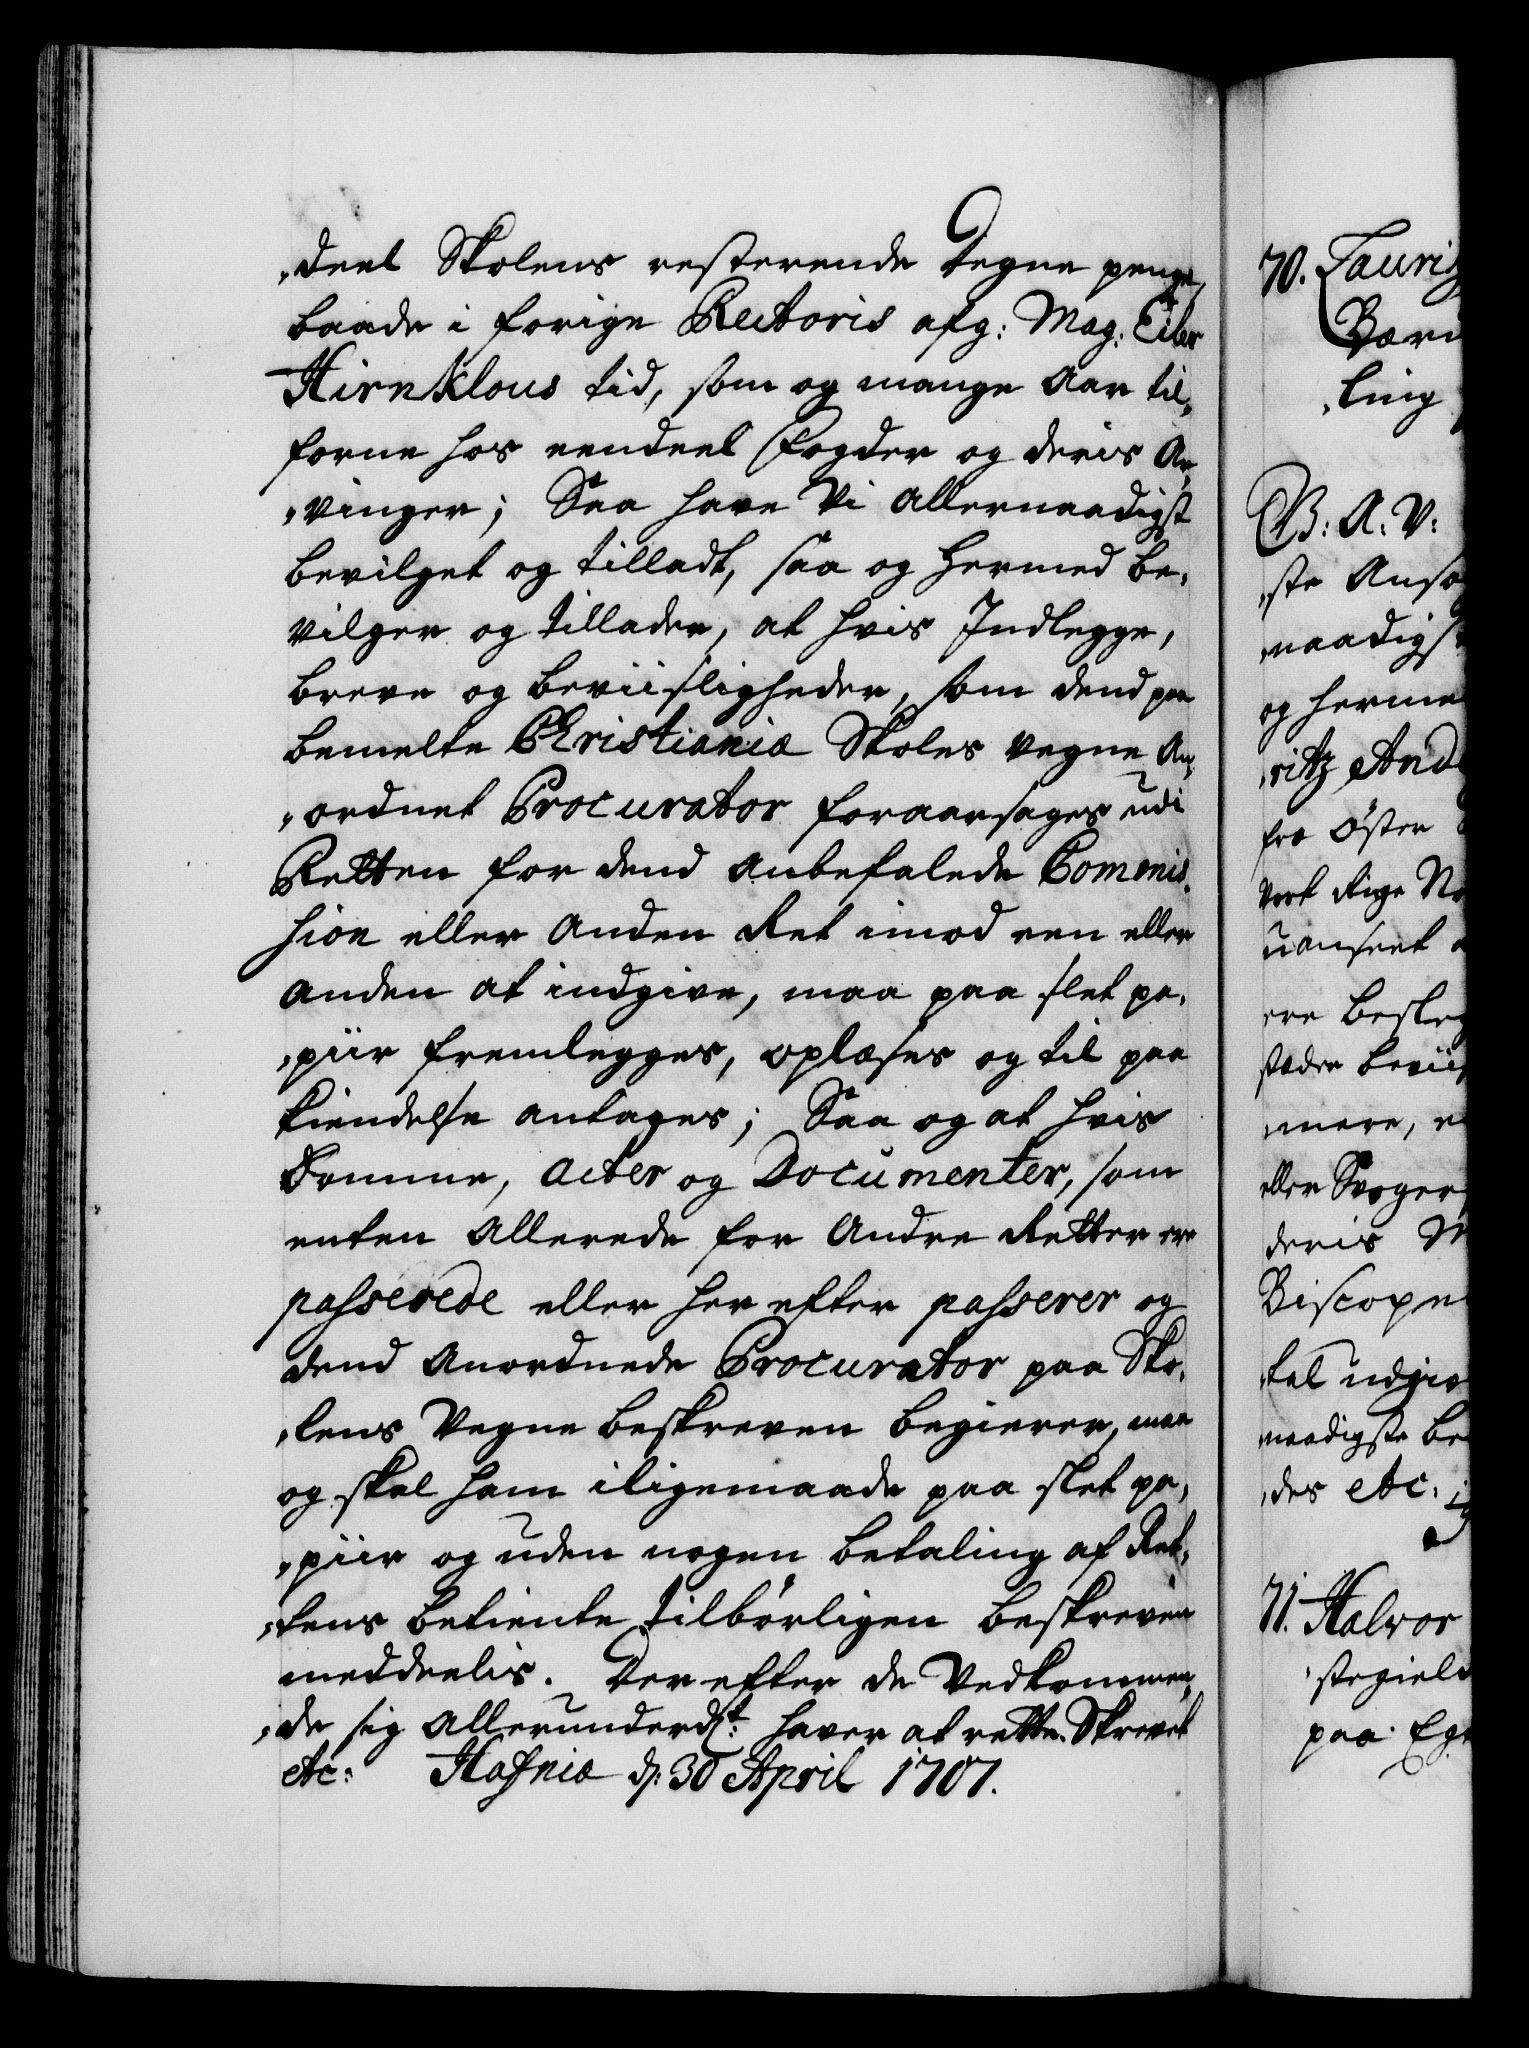 „deel Skolens resterende Degne penge,
baade i forige Rectoris afg: Mag: Eiler
Hirnklous tid, som og mange Aar til„
forne hos eendeel Fogder og deris Ar„
„vinger; Saa have Vi Allernaadigst
bevilget og tilladt, saa og hermed be„
vilger og tillader, at hvis Indlegge,
breve og beviisligheder, som dend paa
bemelte Christianiæ Skoles vegne An„
„ordnet Procurator foraarsages udi
Retten for dend Anbefalede Commis„
sion eller Anden Ret imod een eller
anden at indgive, maa paa slet pa„
„piir fremlegges, oplæses og til paa
kiendelse antages; Saa og at hvis
Domme, Acter og Documenter, som
enten Allerede for Andre Retter ere
passerede eller her efter passerer og
dend Anordnede Procurator paa Sko„
„lens Vegne beskreven begierer, maa
og skal ham iligemaade paa slet pa„
„piir og uden nogen betaling af Ret„
„tens betiente tilbørligen beskreven
meddeelis. Der efter de Vedkommen„
„de sig Allerunderdst: haver at rette. Skrevet
etc: Hafniæ d: 30 April 1707.
70. Lauritz
Bærn
„ling
B: A. V:
„ste Anso
„naadigst
og herme
„ritz And
fra Øster
vort Rige No
uanseet
ere besleg
stæder beviis
mere,
eller Svoger
deris M
Biscope
„tel udgiv
naadigste be
„des etc:
71. Halvor
„stegield
paa Eg